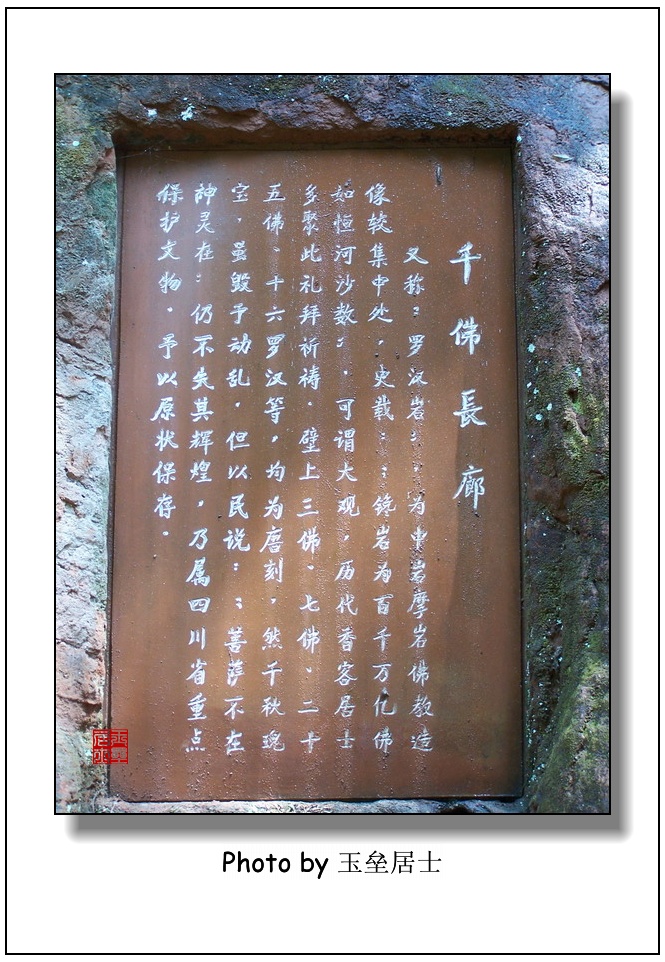 千佛長廊
又称：罗汉岩：，为中岩摩岩佛教造
像较集中处，史载：：镌岩为百千万亿佛
如恒河沙数：，可谓大观，历代香客居士
多聚此礼拜祈祷．壁上三佛、七佛、二十
五佛、十六罗汉等，均为唐刻，然千秋瑰
宝，虽毁予动乱，但以民说：：菩萨不在
神灵在：仍不失其辉煌，乃属四川省重点
保护文物．予以原状保存．
Photo by 玉垒居士